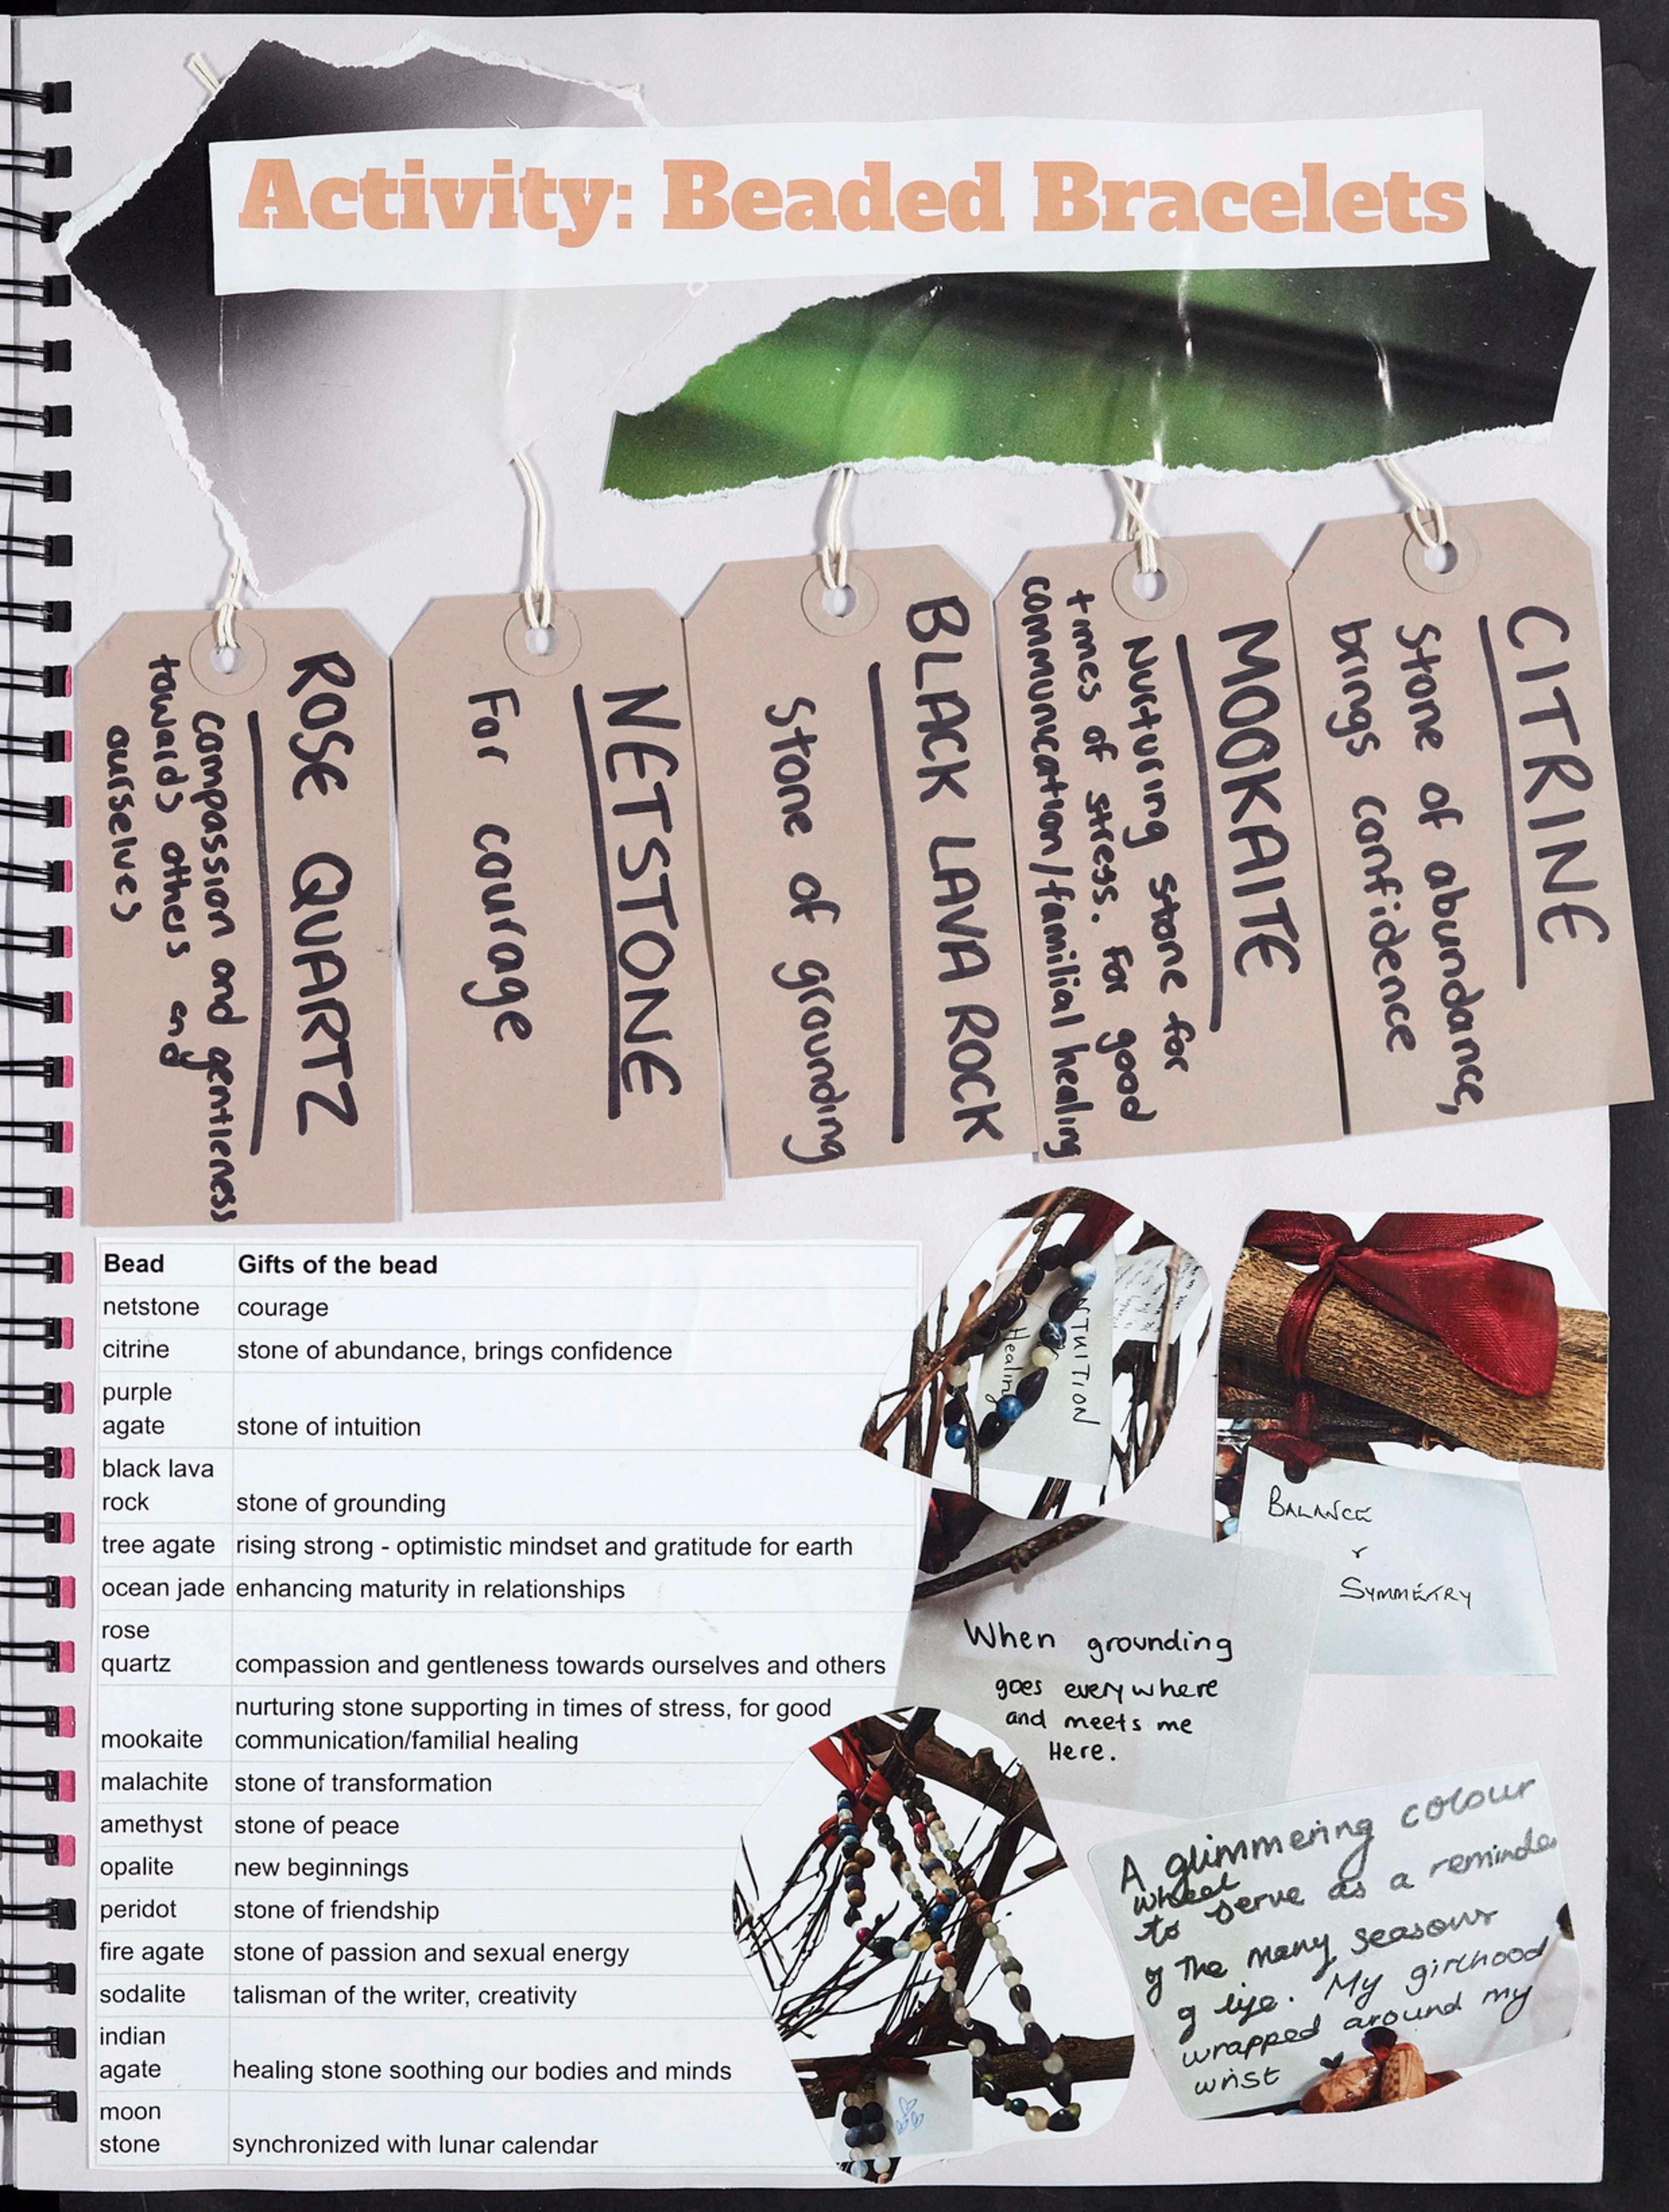 Activity: Beaded Bracelets
ROSE QUARTZ
Compassion and gentleness
towards others and
ourselves
NETSTONE
For courage
BLACK LAVA ROCK
Stone of grounding
MOOKAITE
Nurturing stone for
times of stress. For good
communication/familial healing
CITRINE
Stone of abundance,
brings confidence
Bead Gifts of the bead
netstone courage
citrine stone of abundance, brings confidence
purple
agate stone of intuition
black lava
rock stone of grounding
tree agate rising strong - optimistic mindset and gratitude for earth
ocean jade enhancing maturity in relationships
rose
quartz compassion and gentleness towards ourselves and others
nurturing stone supporting in times of stress, for good
mookaite communication/familial healing
malachite stone of transformation
amethyst stone of peace
opalite new beginnings
peridot stone of friendship
fire agate stone of passion and sexual energy
sodalite talisman of the writer, creativity
indian
agate healing stone soothing our bodies and minds
moon
stone synchronized with lunar calendar
NTUITION
Healin
BALANCE
r
SYMMETRY
When grounding
goes everywhere
and meets me
Here.
A glimmering colour
wheel
to serve as a reminde
of the many seasons
of life. My girlhood
wrapped around my
wrist